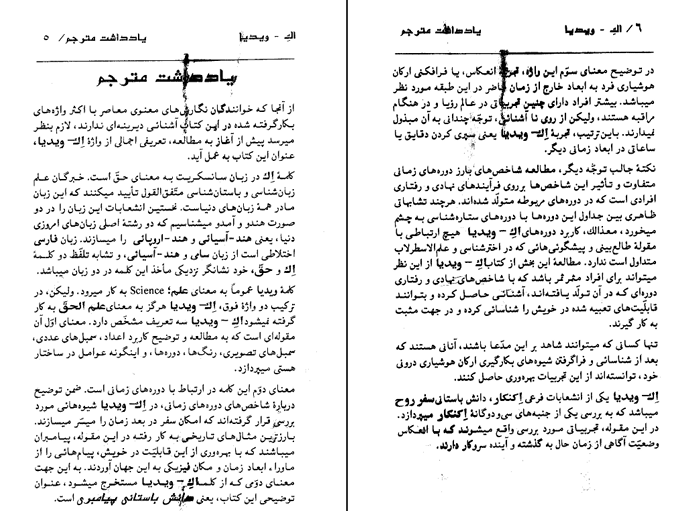 اك - ویدیا
یادداشت مترجم / ۵
یادداشت مترجم
از آنجا که خوانندگان نگارش‌های معنوی معاصر با اکثر واژه‌های
بکارگرفته شده در این کتاب آشنائی دیرینه‌ای ندارند، لازم بنظر
میرسد پیش از آغاز به مطالعه، تعریفی اجمالی از واژهٔ اِك- ویدیا،
عنوان این کتاب به عمل آید.
کلمهٔ اِك در زبان سانسکریت به معنای حقّ است. خبرگان علم
زبان‌شناسی و باستان‌شناسی متّفق‌القول تأیید میکنند که این زبان
مادر همهٔ زبان‌های دنیاست. نخستین انشعابات این زبان را در دو
صورت هندو و آمدو میشناسیم که دو رشتهٔ اصلی زبان‌های امروزی
دنیا، یعنی هند-آسیائی و هند-اروپائی را میسازند. زبان فارسی
اختلاطی است از زبان سامی و هند-آسیائی، و تشابه تلفّظ دو کلمهٔ
اِك و حقّ، خود نشانگر نزدیکی مأخذ این کلمه در دو زبان میباشد.
کلمهٔ ویدیا عموماً به معنای علم؛ Science به کار میرود. ولیکن، در
ترکیب دو واژهٔ فوق، اِك-ویدیا هرگز به معنای علم الحقّ به کار
گرفته نمیشود. اِك - ویدیا سه تعریف مشخّص دارد. معنای اوّل آن
مقوله‌ای است که به مطالعه و توضیح کاربرد اعداد، سمبل‌های عددی،
سمبل‌های تصویری، رنگ‌ها، دوره‌ها، و اینگونه عوامل در ساختار
هستی میپردازد.
معنای دوّم این کلمه در ارتباط با دوره‌های زمانی است. ضمن توضیح
دربارهٔ شاخص‌های دوره‌های زمانی، در اِك - ویدیا شیوه‌هائی مورد
بررسی قرار گرفته‌اند که امکان سفر در بعد زمان را میسّر میسازند.
بارزترین مثال‌های تاریخی به کار رفته در این مقوله، پیامبران
میباشند که با بهره‌وری از این قابلیّت در خویش، پیام‌هائی را از
ماوراء ابعاد زمان و مکان فیزیکی به این جهان آوردند. به این جهت
معنای دوّمی که از کلمهٔ اِك - ویدیا مستخرج میشود، عنوان
توضیحی این کتاب، یعنی دانش باستانی پیامبری است.
۶ / اك - ویدیا
یادداشت مترجم
در توضیح معنای سوّم این واژه، تجربهٔ انعکس، یا فرافکنی ارکان
هوشیاری فرد به ابعاد خارج از زمان حاضر در این طبقه مورد نظر
میباشد. بیشتر افراد دارای چنین تجربیاتی در عالم رؤیا و در هنگام
مراقبه هستند، ولیکن از روی نا آشنائی، توجّه چندای به آن مبذول
نمیدارند. باین‌ترتیب، تجربهٔ اِك-ویدیا یعنی سپری کردن دقایق یا
ساعاتی در ابعاد زمانی دیگر.
نکتهٔ جالب توجّه دیگر، مطالعه شاخص‌های بارز دوره‌های زمانی
متفاوت و تأثیر این شاخص‌ها برروی فرآیندهای نهادی و رفتاری
افرادی است که در دوره‌های مربوطه متولّد شده‌اند. هرچند تشابهاتی
ظاهری بین جداول این دوره‌ها با دوره‌های ستاره‌شناسی به چشم
میخورد، معذالك، کاربرد دوره‌های اِك - ویدیا هیچ ارتباطی با
مقولهٔ طالع‌بینی و پیشگوئی‌هائی که در اخترشناسی و علم‌الاسطرلاب
متداول است ندارد. مطالعهٔ این بخش از کتاب اِك - ویدیا از این نظر
میتواند برای افراد مثمرثمر باشد که با شاخص‌های نهادی و رفتاری
دوره‌ای که در آن تولّد یافته‌اند، آشنائی حاصل کرده و بتوانند
قابلیّت‌های تعبیه شده در خویش را شناسائی کرده و در جهت مثبت
به کار گیرند.
تنها کسانی که میتوانند شاهد بر این مدّعا باشند، آنانی هستند که
بعد از شناسائی و فراگرفتن شیوه‌های بکارگیری ارکان هوشیاری درونی
خود، توانسته‌اند از این تجربیات بهره‌وری حاصل کنند.
اِك-ویدیا یکی از انشعابات فرعی اِکنکار، دانش باستانی سفر روح
میباشد که به بررسی یکی از جنبه‌های سی‌ودوگانهٔ اِکنکار میپردازد.
در این مقوله، تجربیاتی مورد بررسی واقع میشوند که با انعکاس
وضعیّت آگاهی از زمان حال به گذشته و آینده سروکار دارند.